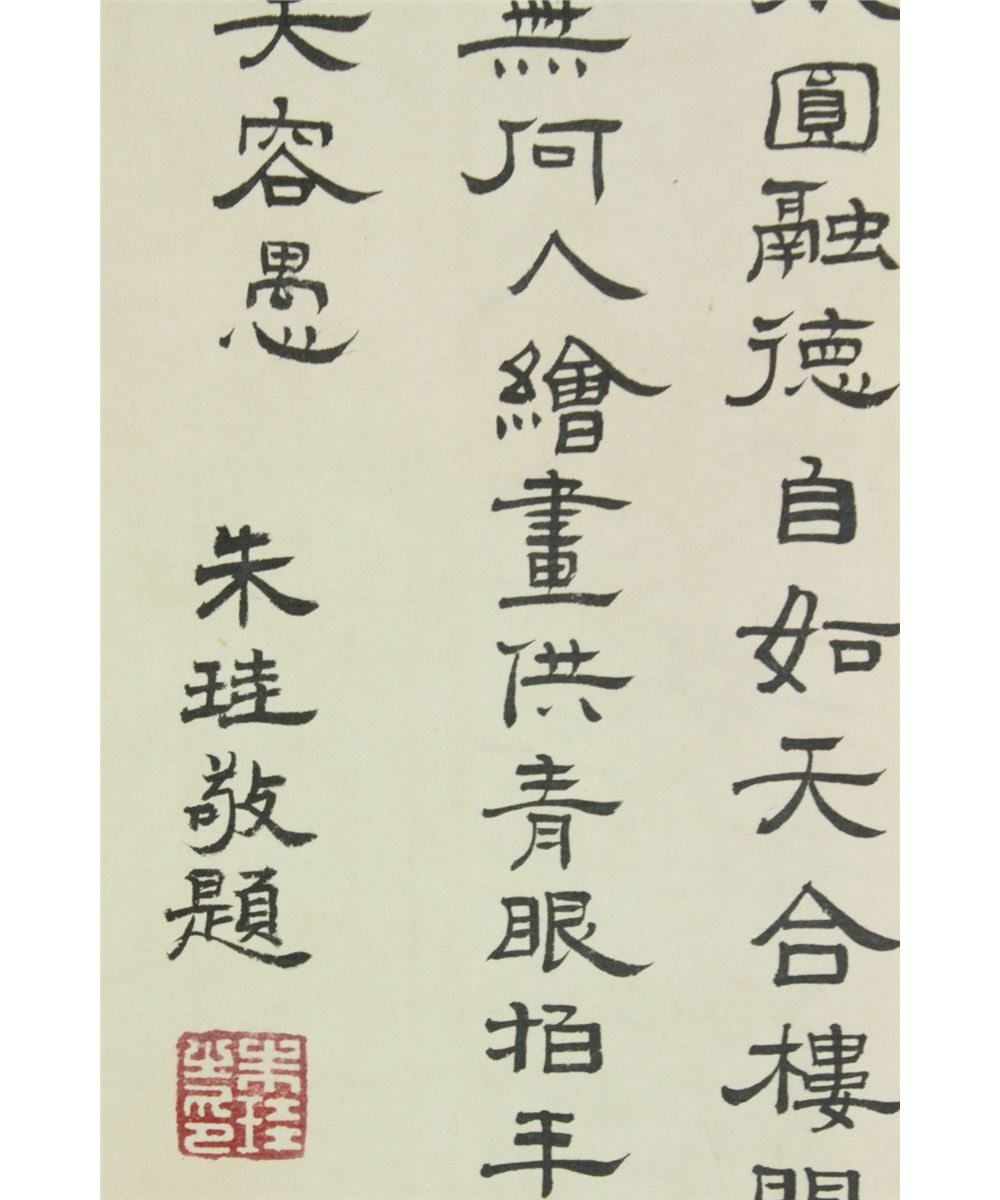 圓融德自如天合樓
無何人繪畫供青眼拍手
容愚 朱珪敬題
朱珪
之印